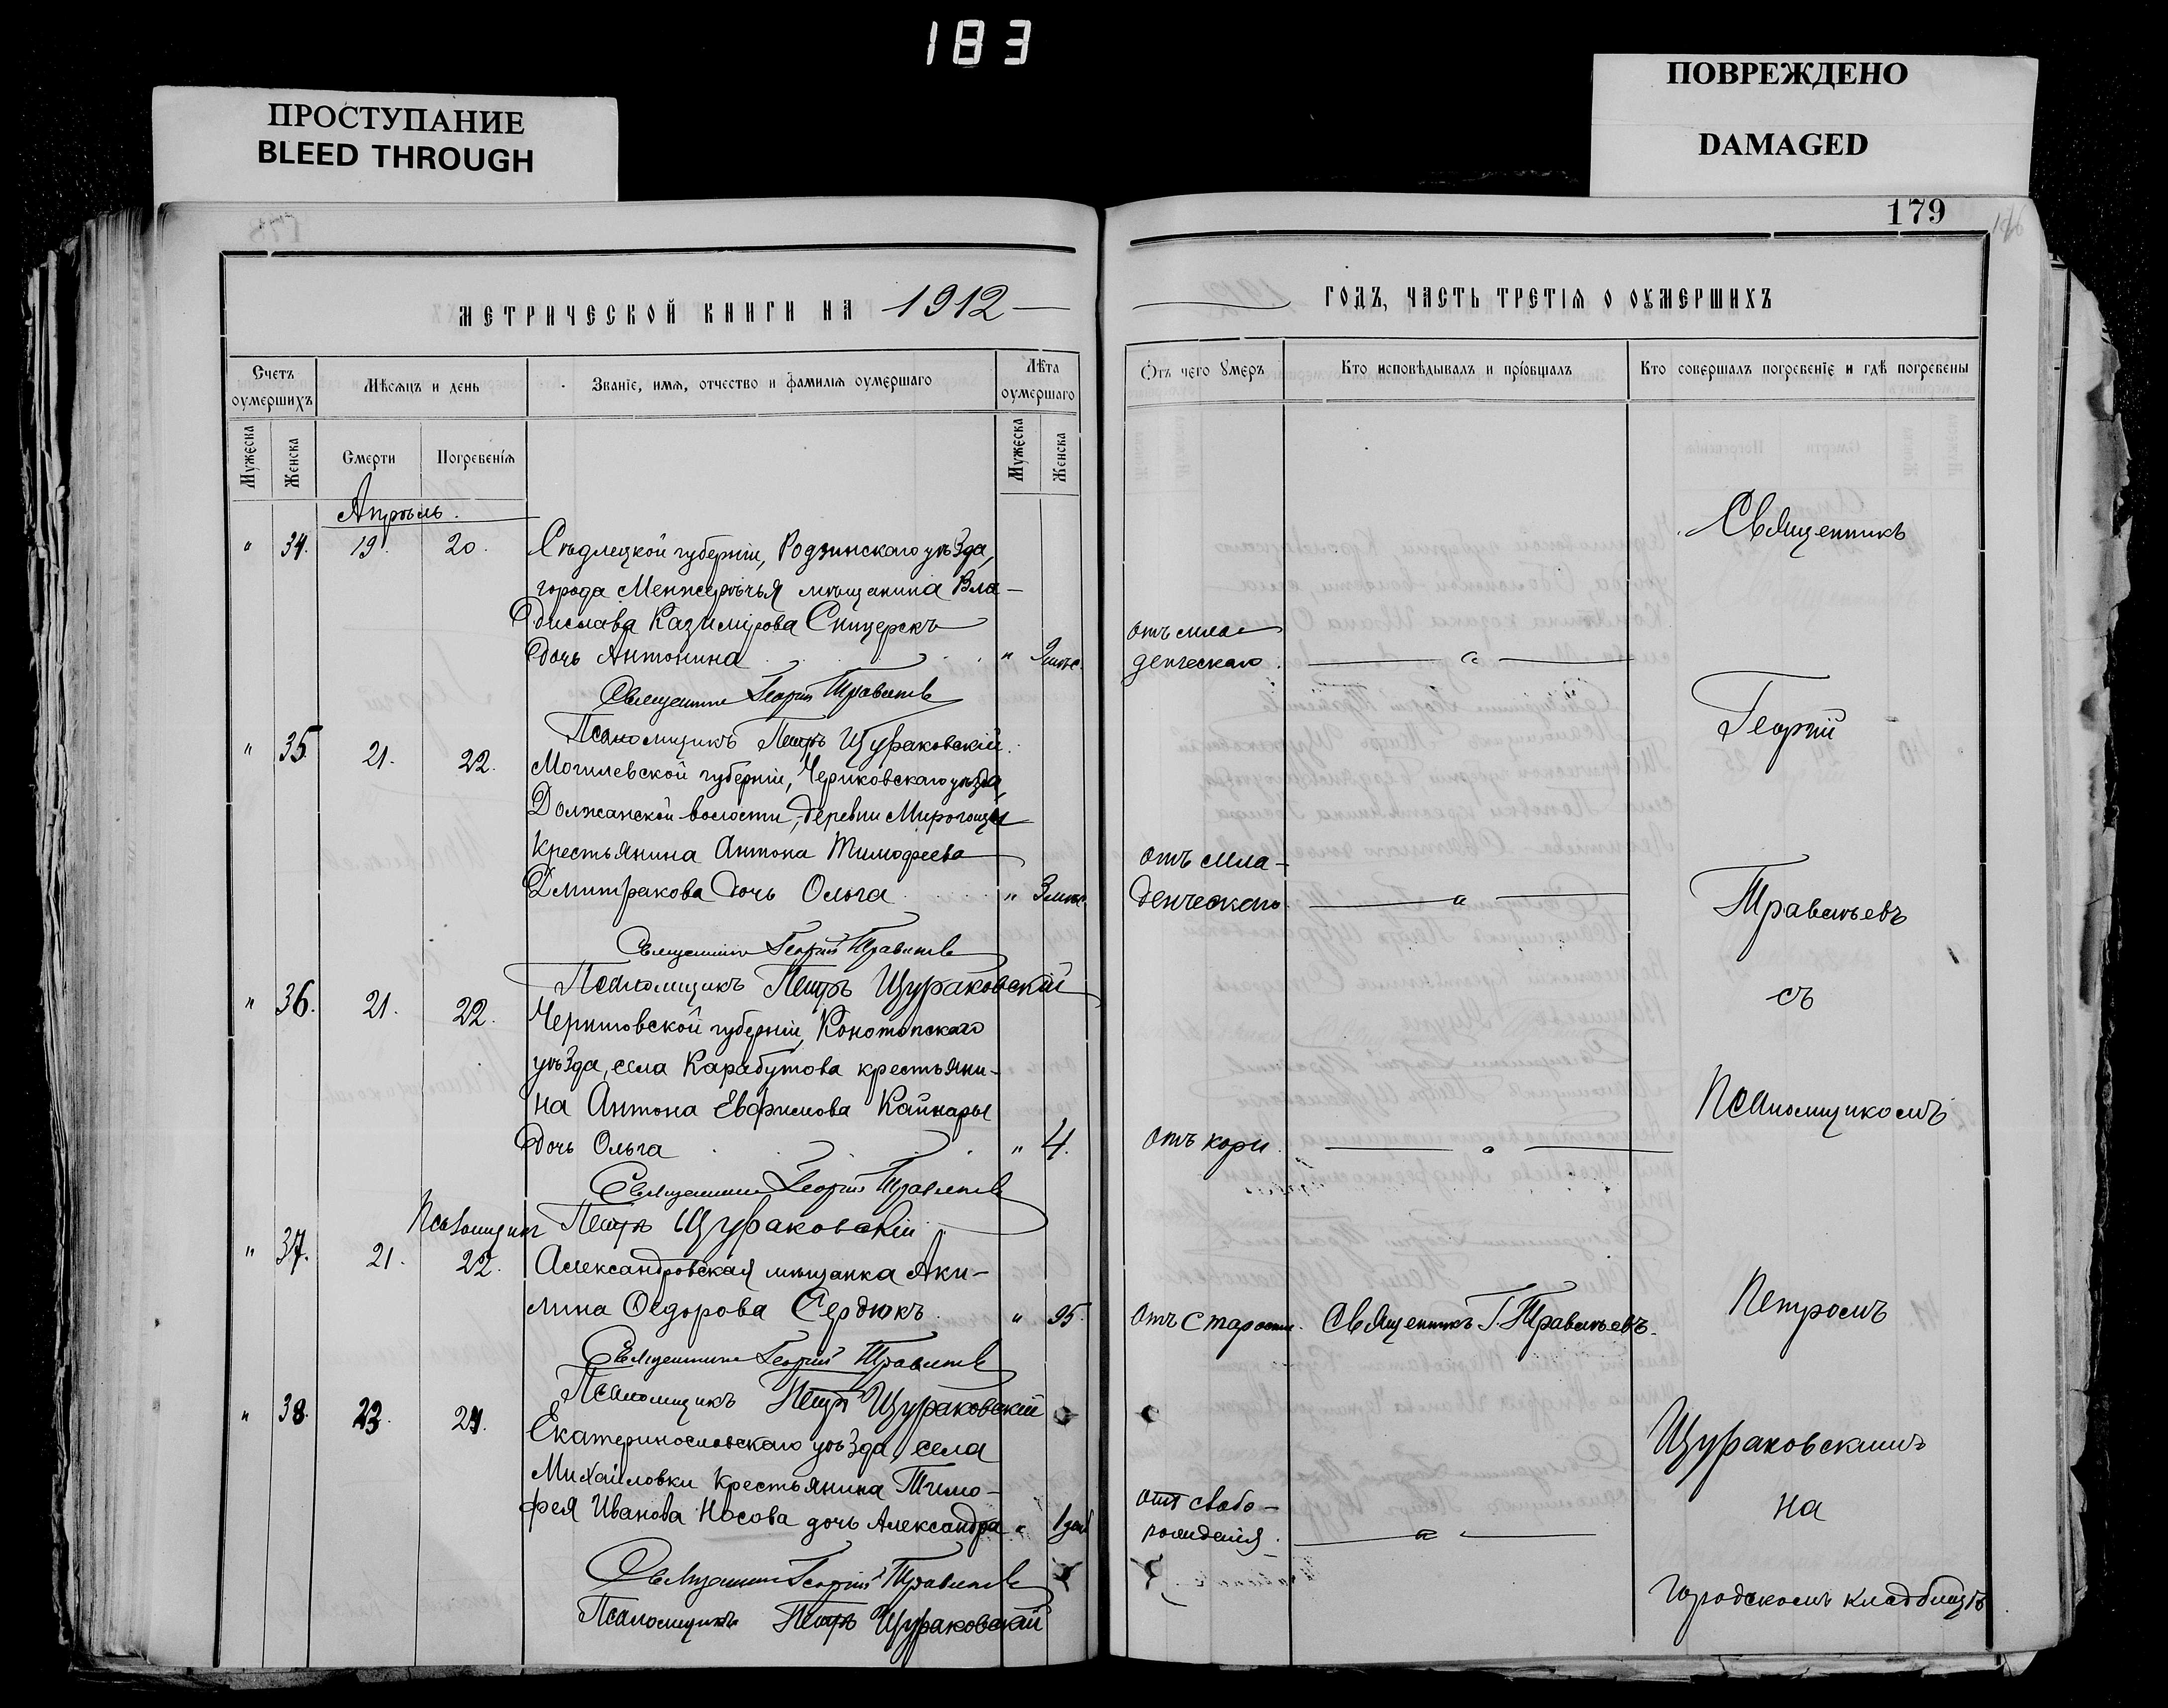 183
ПРОСТУПАНИЕ
BLEED THROUGH
ПОВРЕЖДЕНО
DAMAGED
179
МЕТРИЧЕСКОЙ КНИГИ НА 1912
ГОДЪ, ЧАСТЬ ТРЕТІѦ О ОУМЕРШИХЪ
Счетъ оумершихъ
Мѣсяцъ и день
Званіе, имѧ, отчество и фамилїѧ оумершаго
Лѣта оумершаго
Отъ чего оумеръ
Кто исповѣдывалъ и пріобщалъ
Кто совершалъ погребеніе и гдѣ погребены
Мужеска
Женска
Смерти
Погребенїѧ
Мужеска
Женска
Апрѣль.
" 34. 19. 20. Сѣдлецкой губерніи, Родзинскаго уѣзда,
города Менжерѣчья мѣщанина Вла-
дислава Казимірова Спицерскъ
дочь Антонина " 9 мѣс.
отъ мла-
денческаго.
Священникъ Георгій Травиньевъ
Псаломщикъ Петръ Щураковскій.
" 35. 21. 22. Могилевской губерніи, Чериковскаго уѣзда,
Должанской волости, деревни Мирогощи
крестьянина Антона Тимофеева
Дмитракова дочь Ольга " 3 мѣс.
отъ мла-
денческаго
Священникъ Георгій Травиньевъ
Псаломщикъ Петръ Щураковскій
" 36. 21. 22. Черниговской губерніи, Конотопскаго
уѣзда, села Карабутова крестьяни-
на Антона Евфимова Кайнары
дочь Ольга " 4.
отъ кори.
Священникъ Георгій Травиньевъ
Псаломщикъ Петръ Щураковскій
" 37. 21. 22. Александровская мѣщанка Аки-
лина Ѳедорова Сердюкъ. " 95.
отъ старости. Священникъ Г. Травиньевъ.
Священникъ Георгій Травиньевъ
Псаломщикъ Петръ Щураковскій
" 38. 23. 24. Екатеринославскаго уѣзда, села
Михайловки крестьянина Тимо-
фея Иванова Носова дочь Александра " 1 день
отъ слабо-
рожденія.
Священникъ Георгій Травиньевъ
Псаломщикъ Петръ Щураковскій
Священникъ
Георгій
Травиньевъ
съ
псаломщикомъ
Петромъ
Щураковскимъ
на
городскомъ кладбищѣ